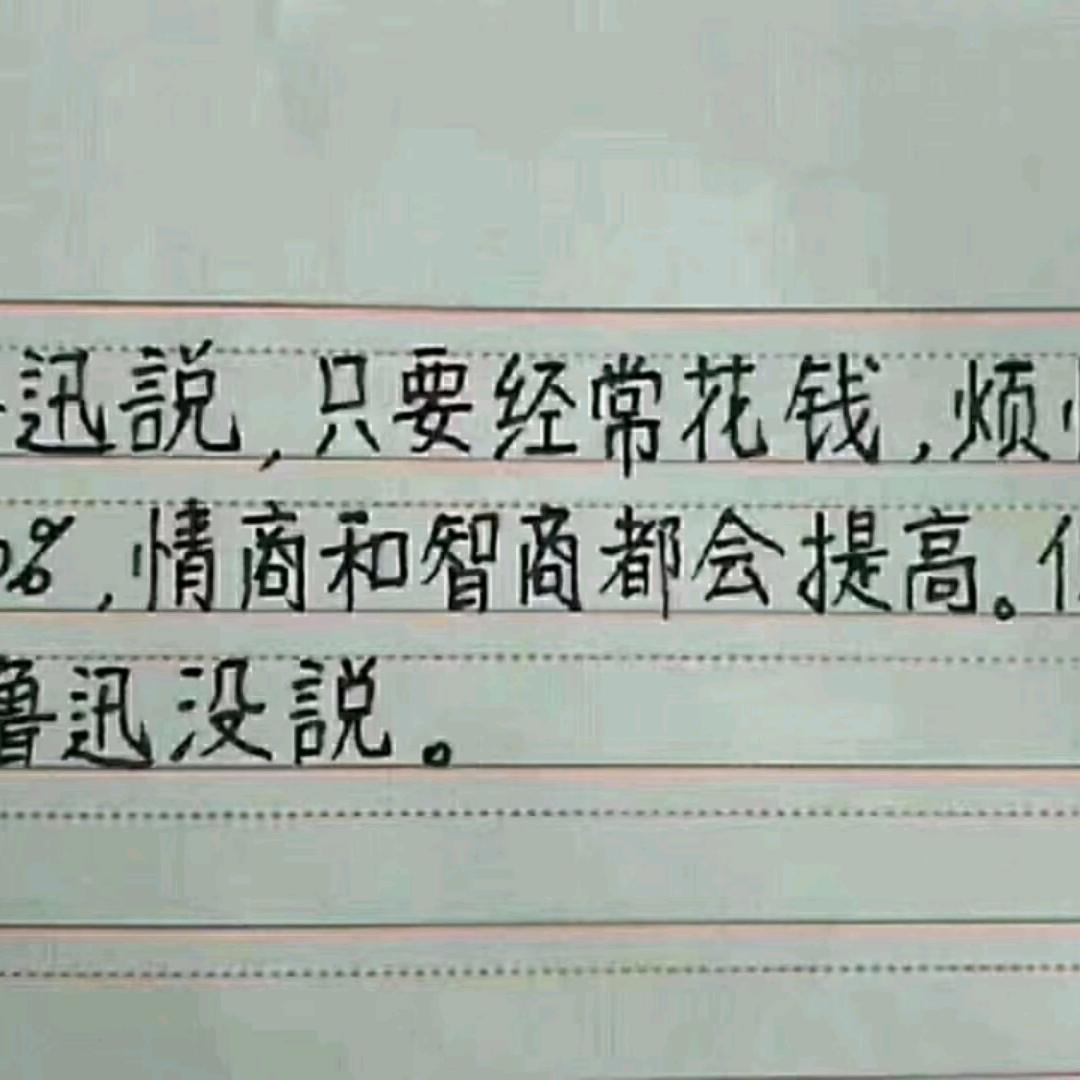 迅説,只要经常花钱,烦
%,情商和智商都会提高。
鲁迅没説。